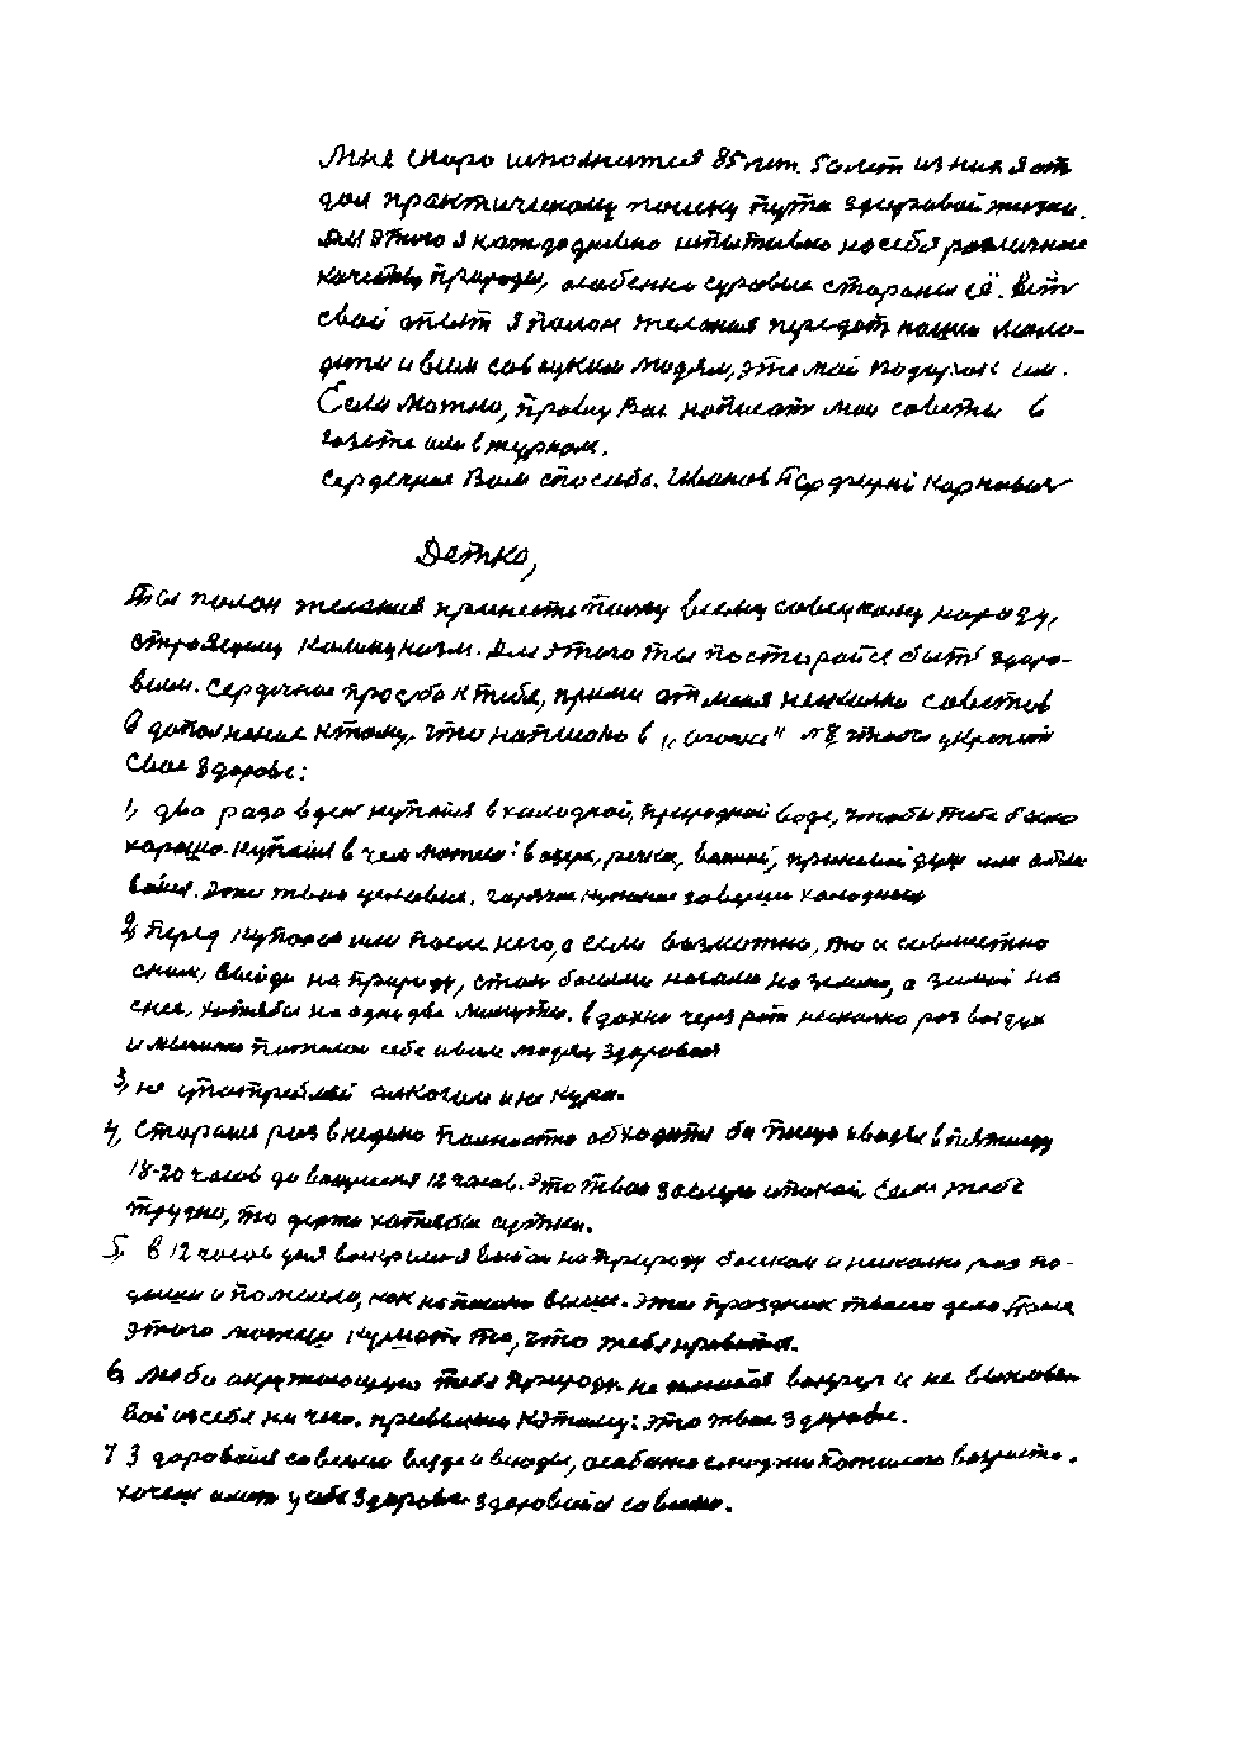 Мне скоро исполнится 85 лет. 50 лет из них я от
дал практическому поиску пути здоровой жизни.
Для этого я каждодневно испытываю на себя различные
качества природы, особенно суровые стороны её.
свой опыт я полон желания передать нашей моло-
дёжи и всем советским людям, это мой подарок им.
Если можно, прошу Вас написать мои советы в
газете или в журнал.
Сердечное Вам спасибо. Иванов Порфирий Корневич
Детка,
Ты полон желания принести пользу всему советскому народу,
строящему коммунизм. Для этого ты постарайся быть здоро-
вым. Сердечная просьба к тебе, прими от меня несколько советов
в дополнение к тому, что написано в „Огонке" №8 чтобы укрепить
свое здоровье:
1, два раза в день купайся в холодной, природной воде, чтобы тебе было
хорошо. Купайся в чем можешь: в озере, речке, ванной, принимай душ или обли
вайся. Это твои условия. горячее купание заверши холодным
2, перед купанием или после него, а если возможно, то и совместно
с ним, выйди на природу, стань босыми ногами на землю, а зимой на
снег, хотя бы на одну две минуты. вдохни через рот несколько раз воздух
и мысленно пожелай себе и всем людям здоровья
3, не употребляй алкоголя и не кури.
4, Старайся раз в неделю полностью обходиться без пищи и воды в пятницу
18-20 часов до воскресения 12 часов. Это твои заслуги и покой Если тебе
трудно, то держи хотя бы сутки.
5, В 12 часов дня воскресения выйди на природу босиком и несколько раз по-
дыши и помысли, как написано выше. Это праздник твоего дела После
этого можешь кушать то, что тебе нравится.
6, люби окружающую тебя природу. не плюйся вокруг и не выплевы
вай из себя ни чего. привыкни к этому: это твое здоровье.
7 Здоровайся со всеми везде и всюду, особенно с людьми пожилого возраста.
хочешь иметь у себя здоровье здоровайся со всеми.